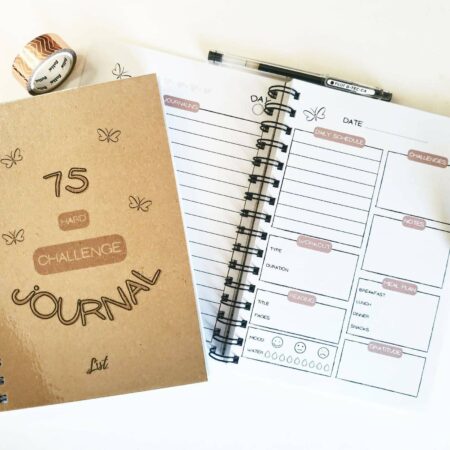 75
HARD
CHALLENGE
JOURNAL
List.
JOURNALING
DA
DATE
DAILY SCHEDULE
CHALLENGES
NOTES
WORKOUT
TYPE
DURATION
MEAL PLAN
BREAKFAST
LUNCH
DINNER
SNACKS
READING
TITLE
PAGES
GRATITUDE
MOOD
WATER